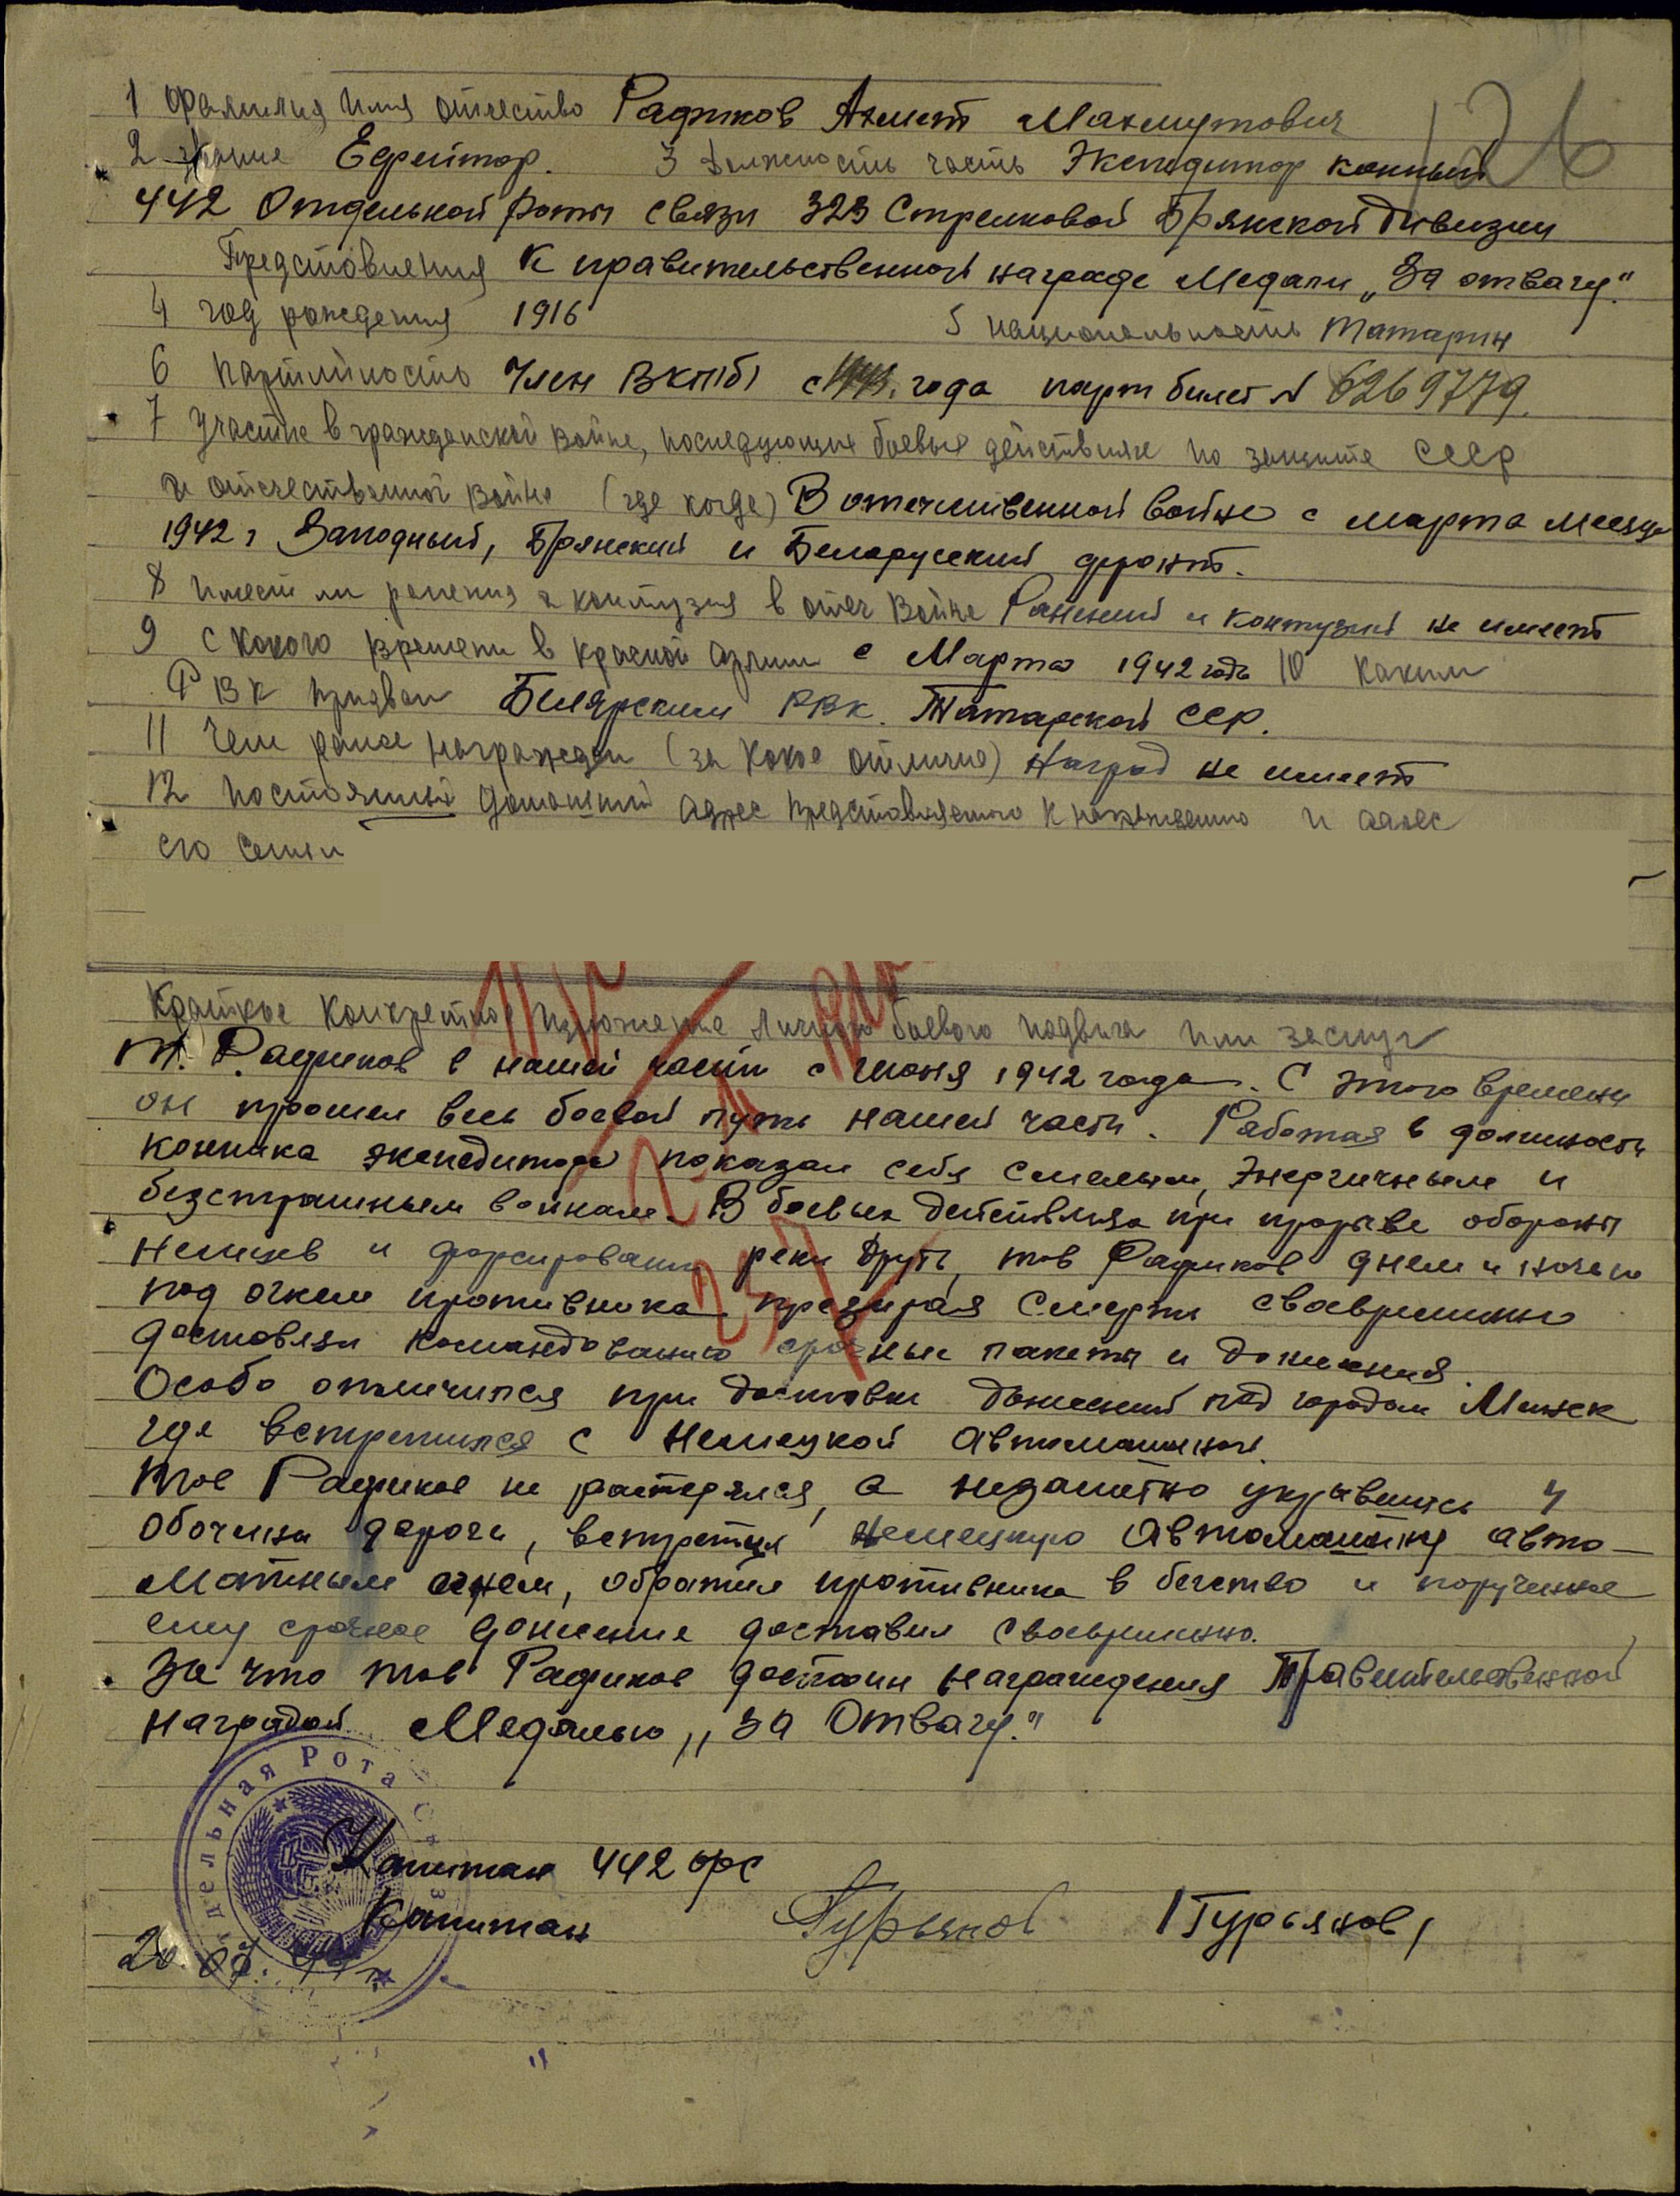 1 Фамилия Имя отчество Рафиков Ахмет Махмутович
126
2 звание Ефрейтор. 3 Должность часть Экспедитор конный
442 Отдельной роты связи 323 Стрелковой Брянской Дивизии
Представления К правительственной награде Медали „За отвагу".
4 год рождения 1916 5 национальность Татарин
6 партийность Член ВКП(б) с 1943. года парт билет № 6269779.
7 участие в гражданской войне, последующих боевых действиях по защите СССР
и отечественной войне (где когда) В отечественной войне с марта месяца
1942 г Западный, Брянский и Белорусский фронт.
8 Имеет ли ранения и контузия в отеч войне Ранений и контузий не имеет
9 С какого времени в красной армии с Марта 1942 года 10 Каким
РВК призван Билярским РВК. Татарской ССР.
11 Чем ранее награжден (за какое отличие) Наград не имеет
12 постоянный домашний адрес представляемого к награждению и адрес
его семьи
Краткое конкретное изложение личного боевого подвига или заслуг
т. Рафиков в нашей части с июня 1942 года. С этого времени
он прошел весь боевой путь нашей части. Работая в должности
конника экспедитора показал себя смелым, Энергичным и
безстрашным воином. В боевых действиях при прорыве обороны
немцев и форсировании реки Друть, тов Рафиков днем и ночью
под огнем противника презирая смерть своевременно
доставлял командованию срочные пакеты и донесения.
Особо отличился при доставки донесений под городом Минск
где встретился с немецкой автомашиной.
Тов Рафиков не растерялся, а незаметно укрывшись у
обочины дороги, встретил немецкую автомашину авто-
матным огнем, обратил противника в бегство и порученное
ему срочное донесение доставил своевременно.
За что тов Рафиков достоин награждения Правительственной
наградой Медалью „за Отвагу."
дельная Рота Связ
Капитан 442 орс
Капитан Гурьянов /Гурьянов/
20.07.44 г